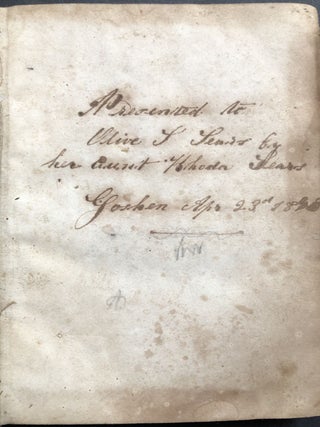 Presented to
Olive S Sears by
her Aunt Rhoda Sears
Goshen Apr 23rd